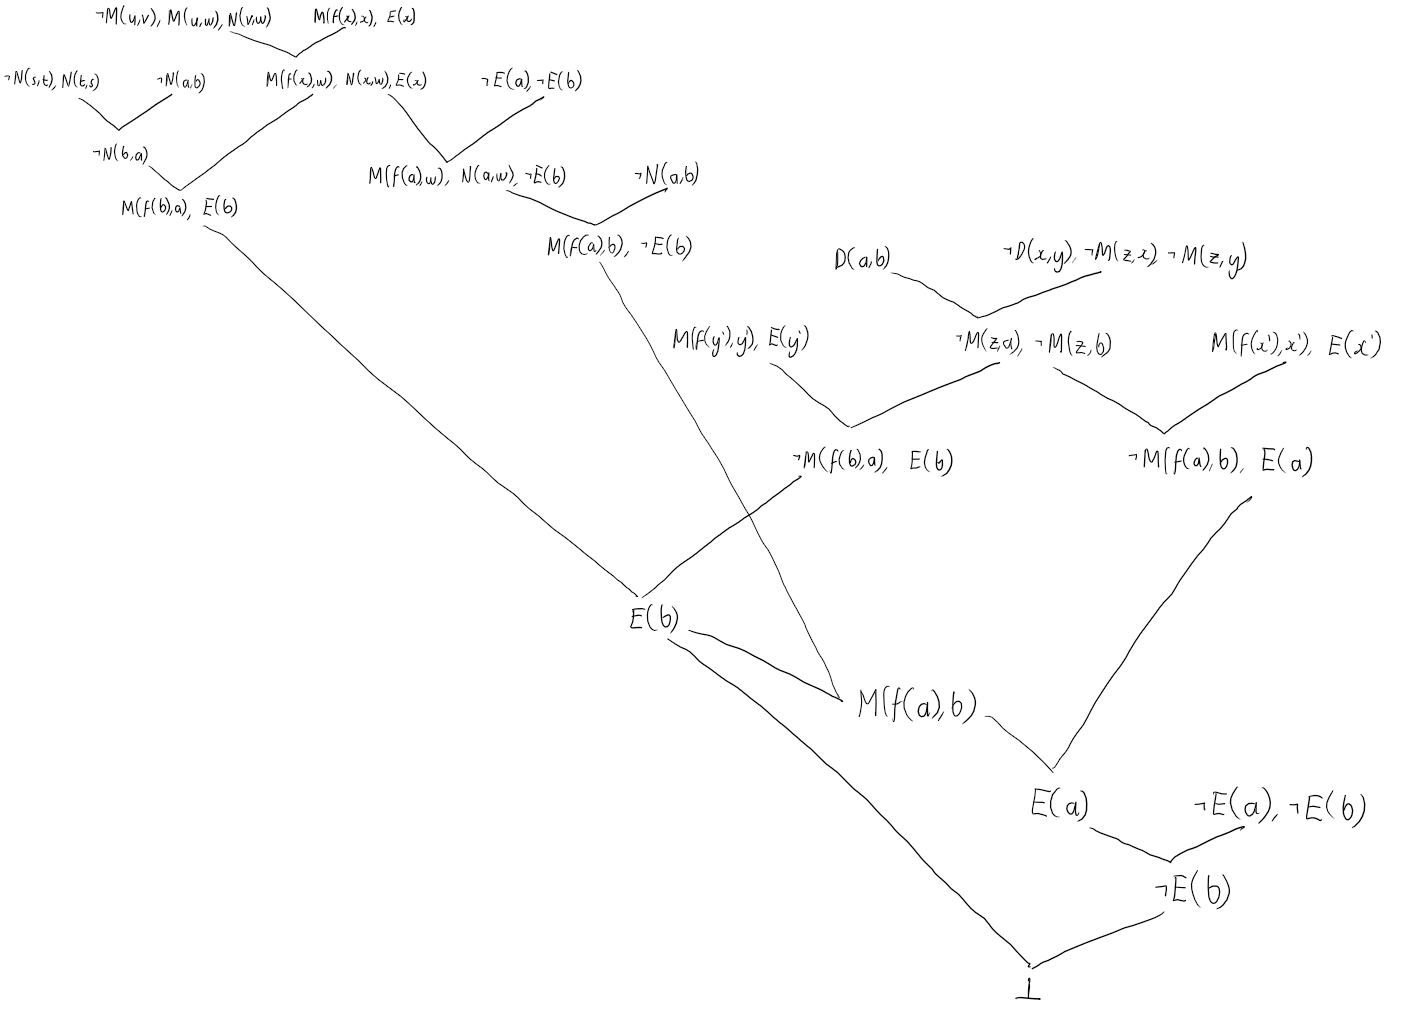 ¬M(u,v), M(u,w), N(v,w) M(f(x),x), E(x)
¬N(s,t), N(t,s) ¬N(a,b) M(f(x),w), N(x,w), E(x) ¬E(a), ¬E(b)
¬N(b,a)
M(f(a),w), N(a,w), ¬E(b) ¬N(a,b)
M(f(b),a), E(b)
M(f(a),b), ¬E(b)
D(a,b) ¬D(x,y), ¬M(z,x), ¬M(z,y)
M(f(y'),y'), E(y') ¬M(z,a), ¬M(z,b) M(f(x'),x'), E(x')
¬M(f(b),a), E(b) ¬M(f(a),b), E(a)
E(b)
M(f(a),b)
E(a) ¬E(a), ¬E(b)
¬E(b)
⊥